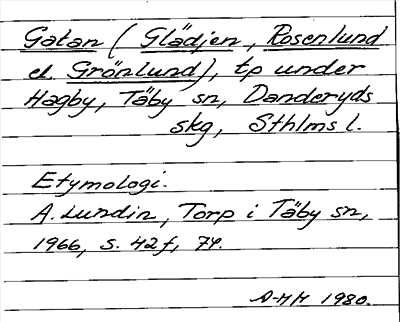 Gatan (Glädjen, Rosenlund
el. Grönlund), tp under
Hagby, Täby sn, Danderyds
skg, Sthlms l.
Etymologi.
A. Lundin, Torp i Täby sn,
1966, s. 42f, 74.
A-HH 1980.